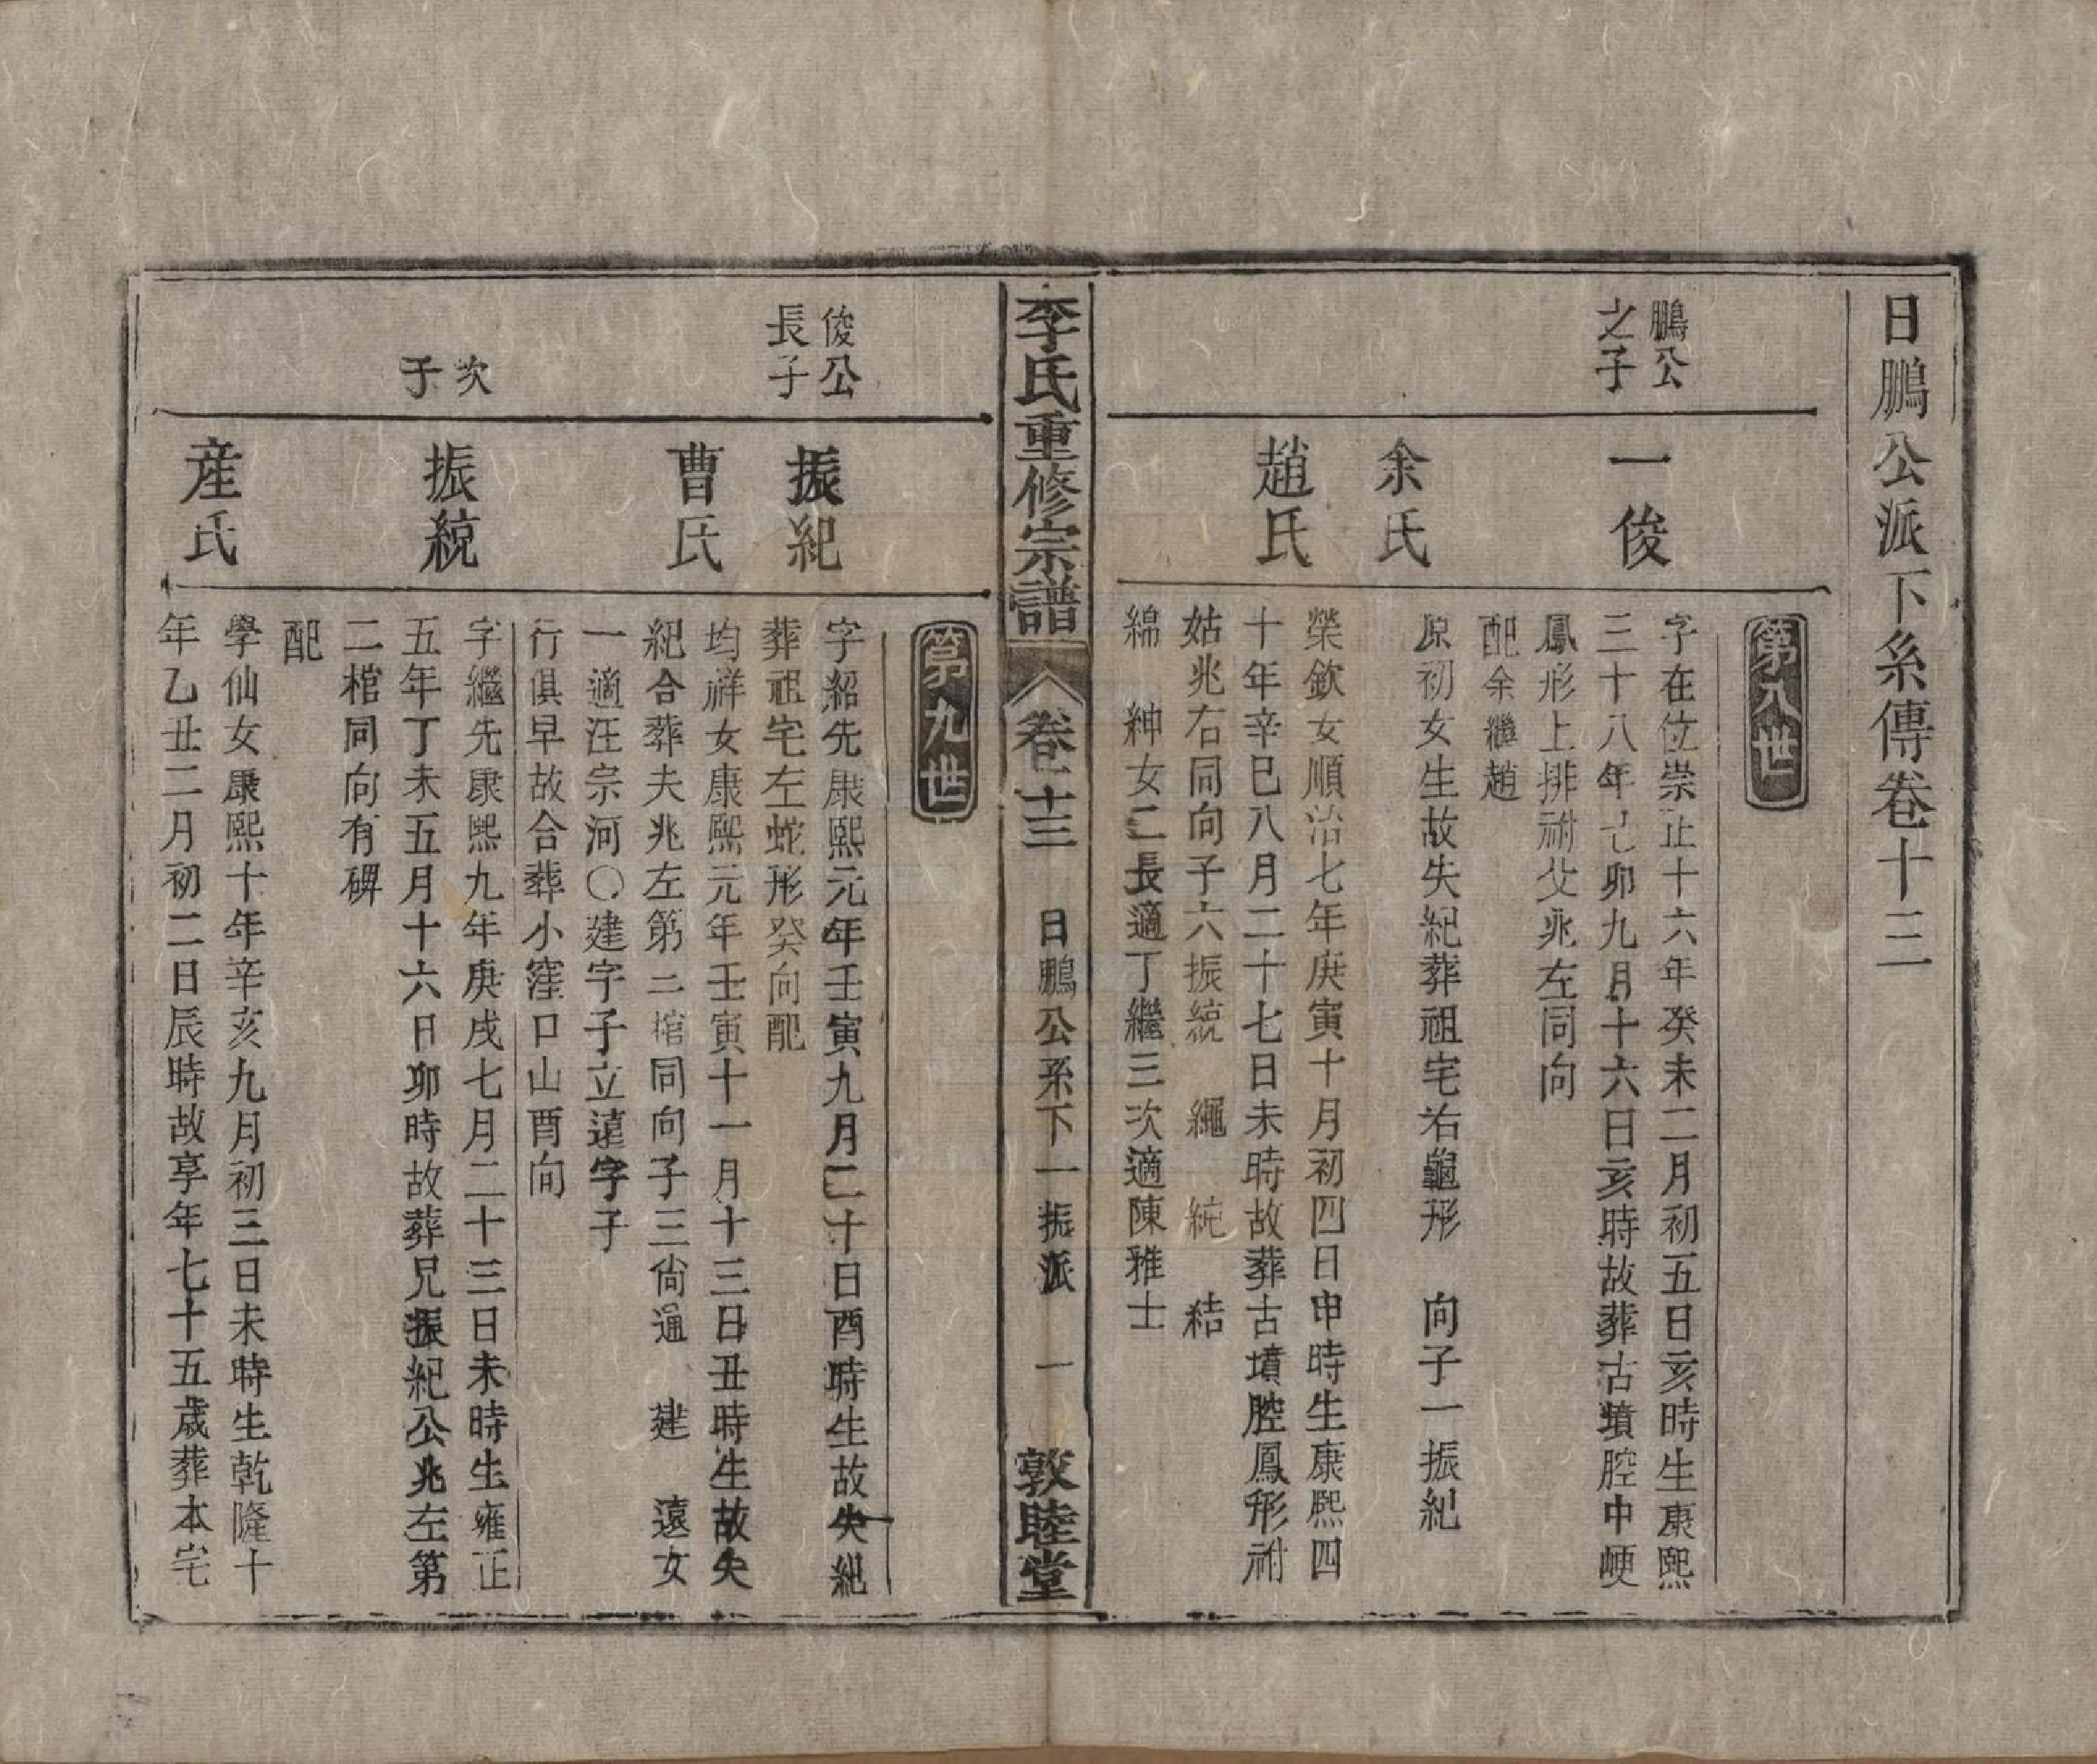 日鵬公派下系傳卷十三
第八世
鵬公
之子
一俊
字在位崇正十六年癸未二月初五日亥時生康熙
三十八年己卯九月十六日亥時故葬古墳腔中峺
鳳形上排祔父兆左同向
配余繼趙
余氏
原初女生故失紀葬祖宅右龜形 向子一振紀
趙氏
榮欽女順治七年庚寅十月初四日申時生康熙四
十年辛巳八月二十七日未時故葬古墳腔鳳形祔
姑兆右同向子六振統 繩 統 結
綿 紳女二長適丁繼三次適陳雅士
李氏重修宗譜 卷十三 日鵬公系下一振派 一 敦睦堂
第九世
俊公
長子
振紀
字紹先康熙元年壬寅九月二十日酉時生故失紀
葬祖宅左蛇形癸向配
曹氏
均祥女康熙元年壬寅十一月十三日丑時生故失
紀合葬夫兆左第二棺同向子三尙通 建 遠女
一適汪宗河〇建字子立遠字子
行俱早故合葬小窪口山酉向
次
子
振統
字繼先康熙九年庚戌七月二十三日未時生雍正
五年丁未五月十六日卯時故葬兄振紀公兆左第
二棺同向有碑
配
産氏
學仙女康熙十年辛亥九月初三日未時生乾隆十
年乙丑二月初二日辰時故享年七十五歲葬本宅